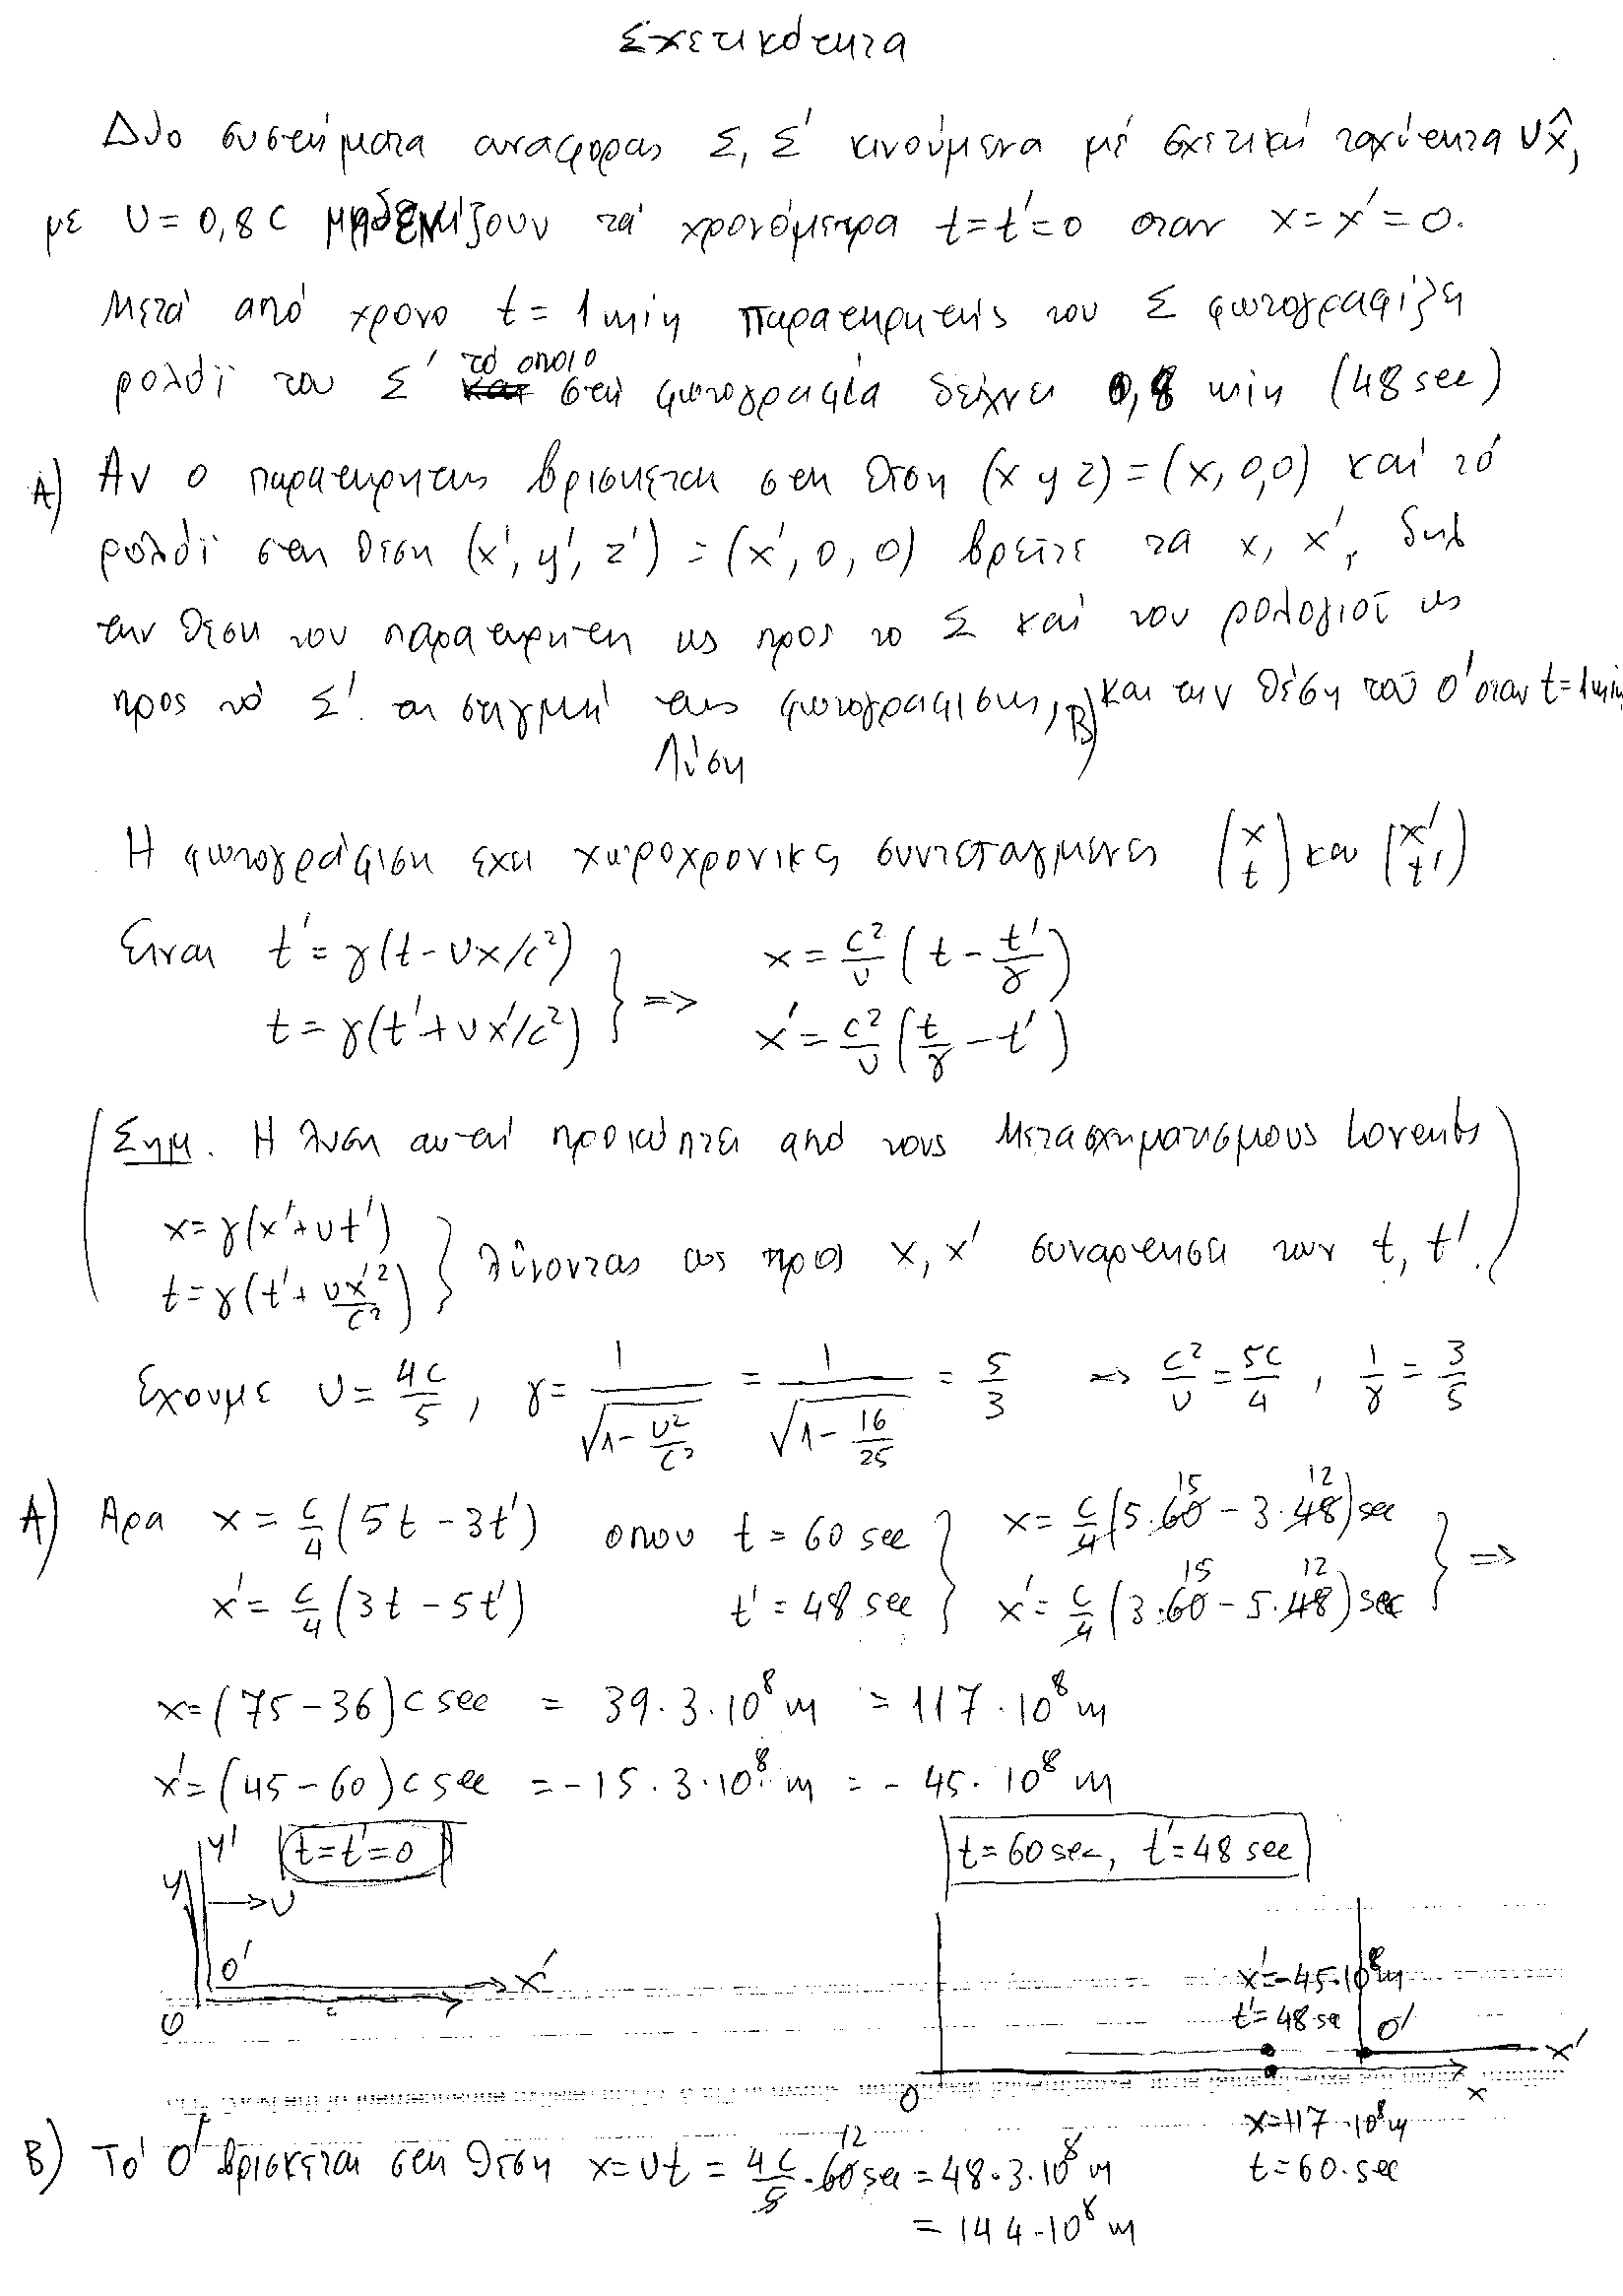 Σχετικότητα
Δυο συστήματα αναφορας Σ, Σ' κινούμενα μέ σχετική ταχύτητα υx̂,
με υ = 0,8 c μηδενίζουν τά χρονόμετρα t = t' = 0 οταν x = x' = 0.
Μετά από χρονο t = 1 min παρατηρητής του Σ φωτογραφίζει
ρολόϊ του Σ' τό οποιο στή φωτογραφία δείχνει 0,8 min (48 sec)
Α) Αν ο παρατηρητης βρισκεται στη θεση (x y z) = (x, 0,0) και τό
ρολόϊ στη θεση (x', y', z') = (x', 0, 0) βρείτε τα x, x', δηλ
την θεση του παρατηρητη ως προς το Σ και του ρολογιού ως
προς τό Σ' τη στιγμή της φωτογραφισης, Β) και την θέση τού Ο' οταν t = 1 min
Λύση
Η φωτογράφιση εχει χωροχρονικες συντεταγμενες (x t) και (x' t')
Ειναι t' = γ(t - υx/c²) } => x = c²/υ (t - t'/γ)
t = γ(t' + υx'/c²) x' = c²/υ (t/γ - t')
(Σημ. Η λυση αυτή προκύπτει από τους Μετασχηματισμους Lorents
x = γ(x' + υt')
t = γ(t' + υx'²/c²) } λύνοντας ως προς x, x' συναρτησει των t, t'.)
Εχουμε υ = 4c/5, γ = 1/√(1 - υ²/c²) = 1/√(1 - 16/25) = 5/3 => c²/υ = 5c/4, 1/γ = 3/5
Α) Αρα x = c/4 (5t - 3t') οπου t = 60 sec } x = c/4 (5·60 - 3·48) sec } =>
15 12
x' = c/4 (3t - 5t') t' = 48 sec x' = c/4 (3·60 - 5·48) sec
15 12
x = (75 - 36) c sec = 39·3·10⁸ m = 117·10⁸ m
x' = (45 - 60) c sec = -15·3·10⁸ m = -45·10⁸ m
y' t = t' = 0 t = 60 sec, t' = 48 sec
y υ
O' x' x' = -45·10⁸ m
O t' = 48 se O'
x'
O x
x = 117·10⁸ m
t = 60·sec
Β) Τό Ο' βρισκεται στη θεση x = υt = 4c/5 · 60 sec = 48·3·10⁸ m
12
= 144·10⁸ m